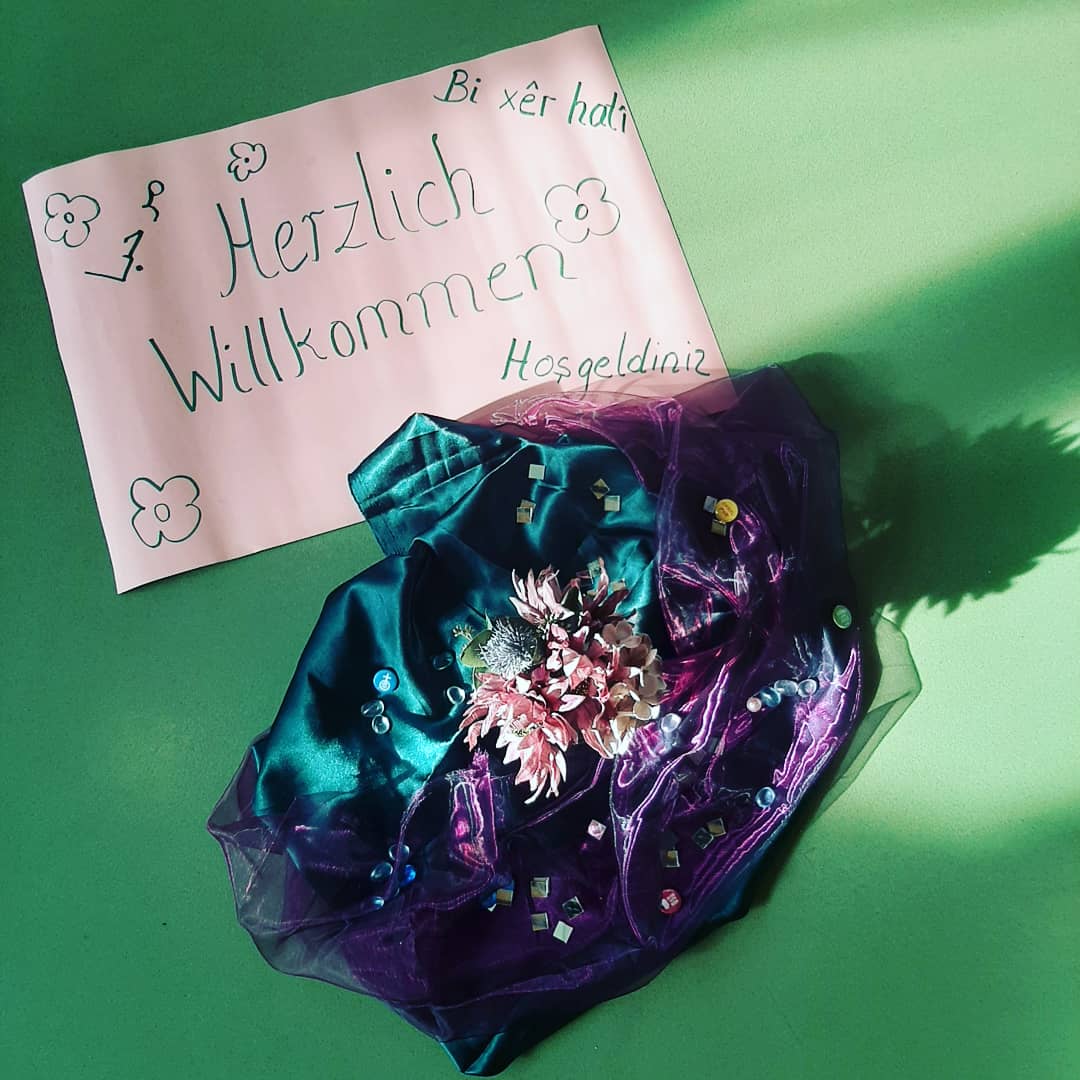 Bi xêr hatî
Herzlich
Willkommen
Hoşgeldiniz